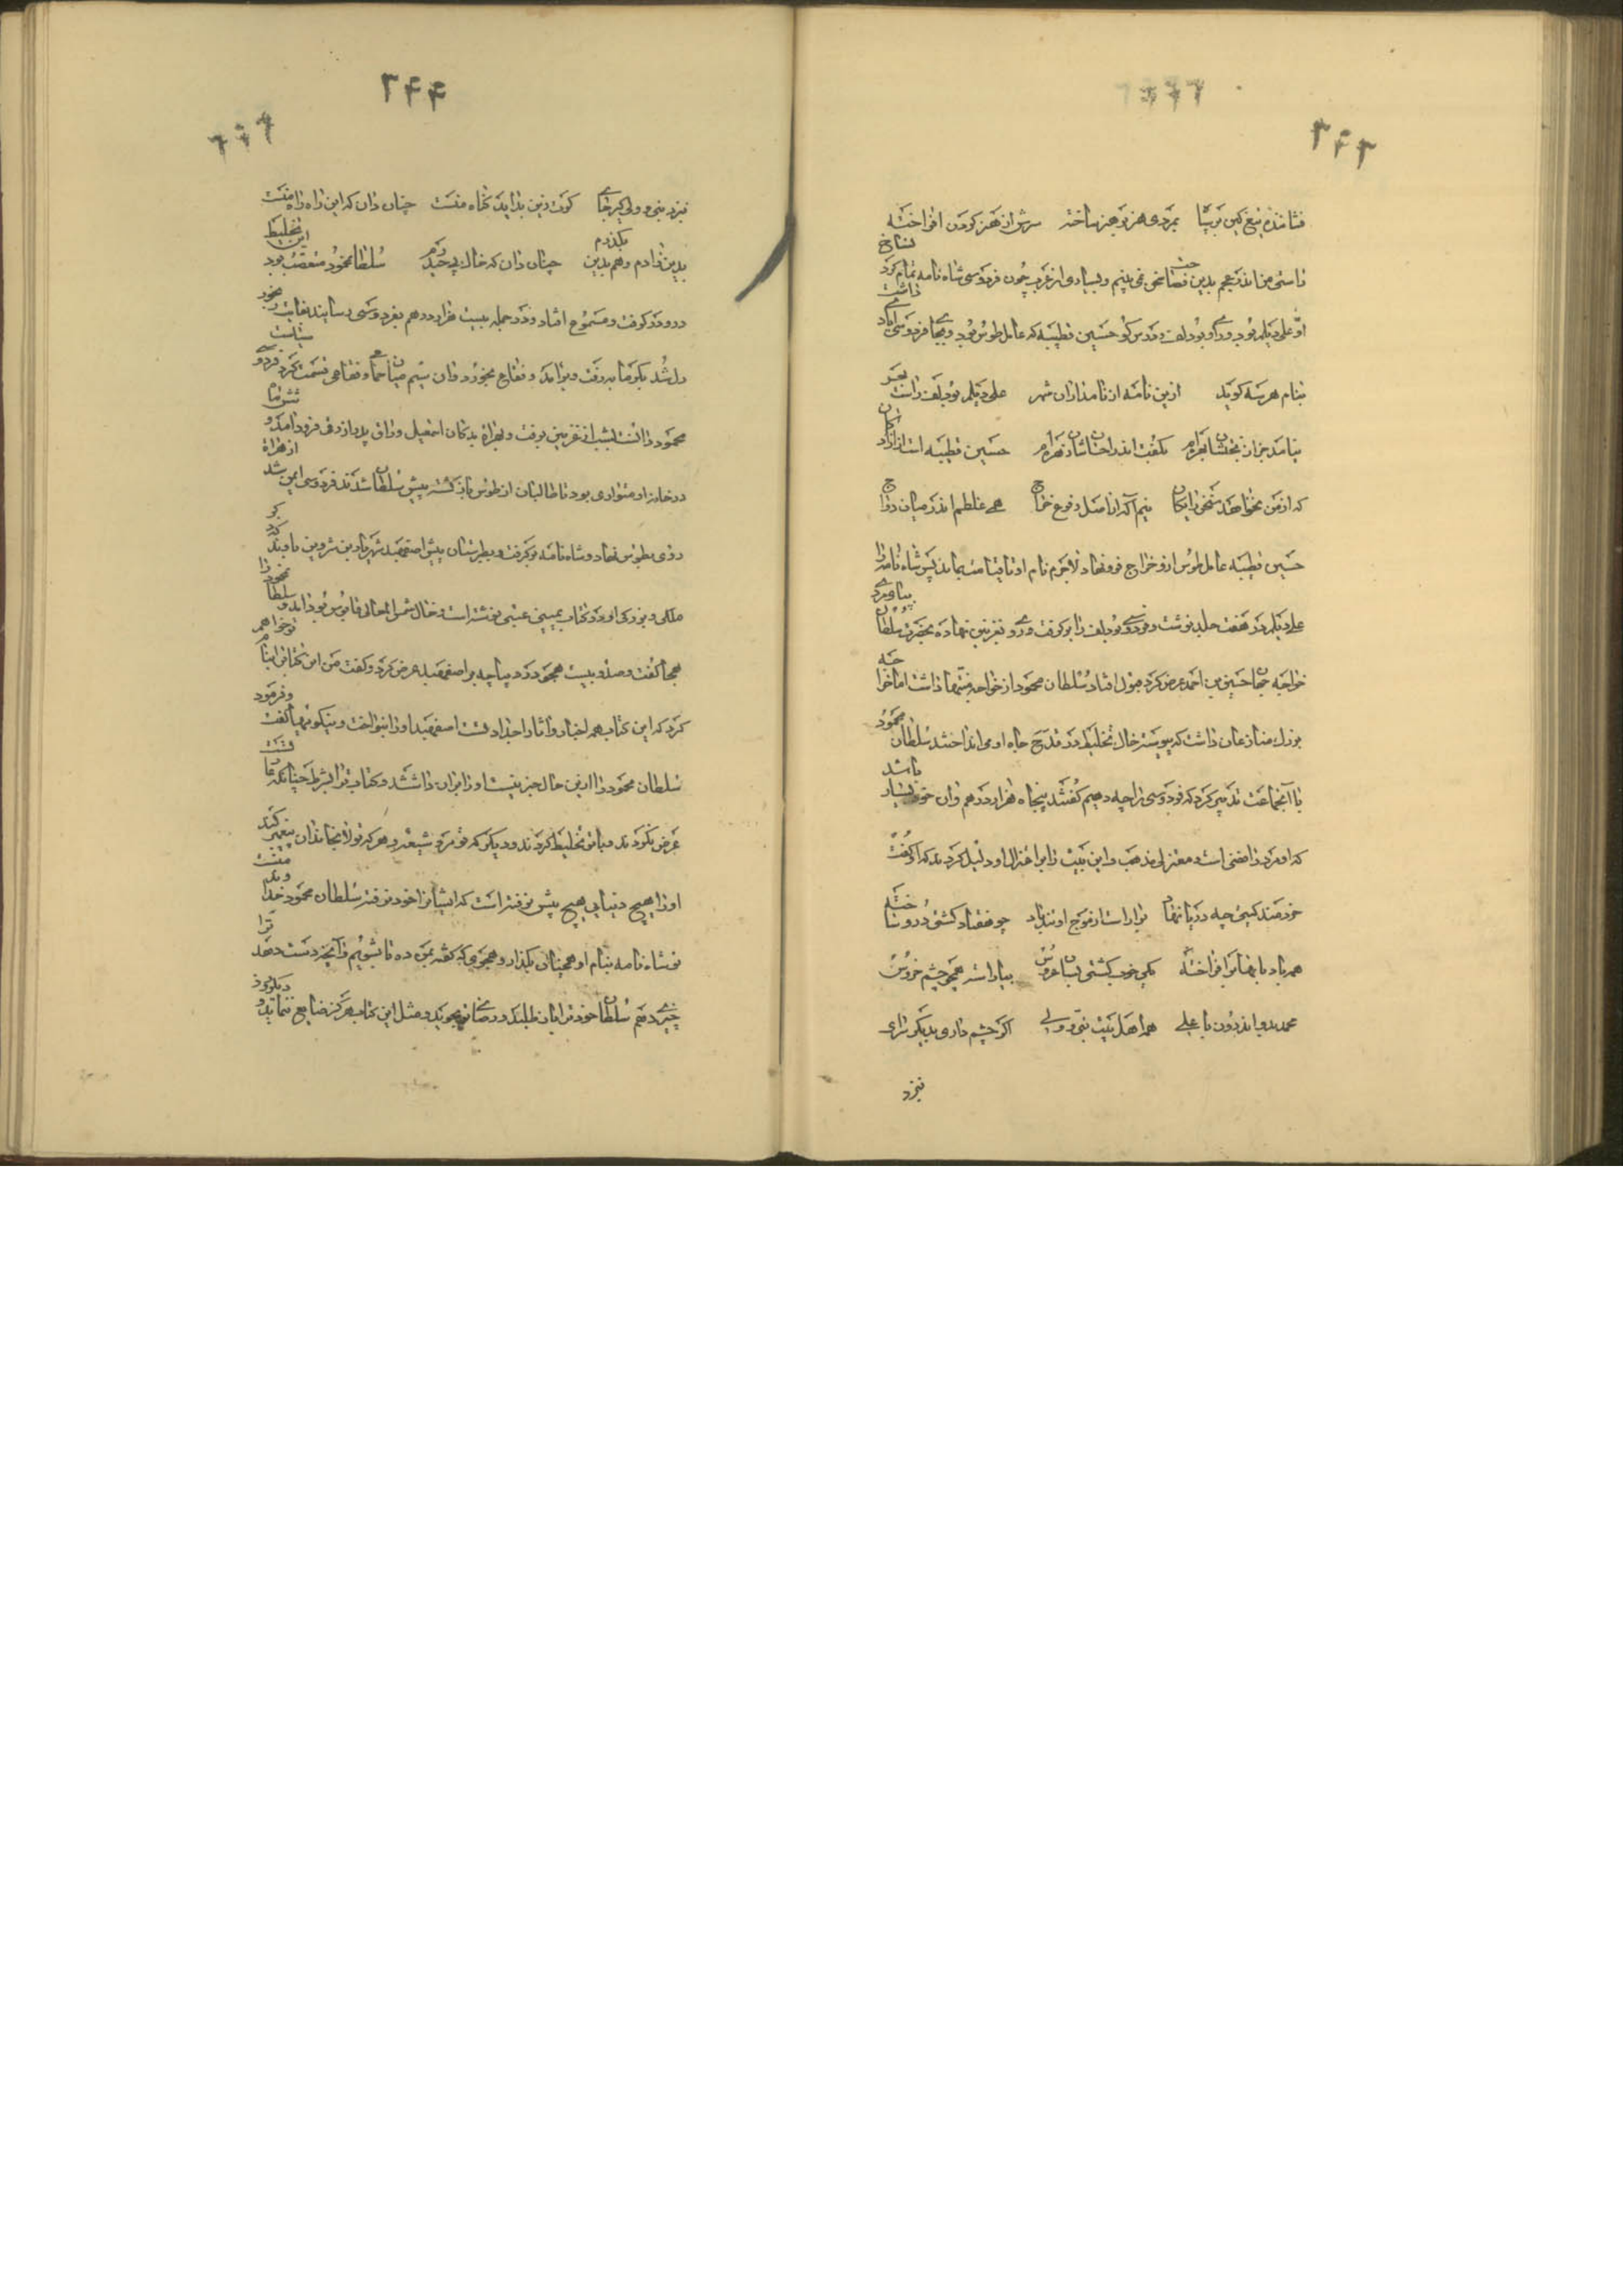 نشانده تیغ کین بر
بمردی هنر در هنر ساخته سرش از هنر گردن افراخته
راستی من اندر عجم بدین فصاحت سخن نمی بینم و بسیاری از عرب چون فردوسی شاه نامه تمام کرد نساخ
او علی دیلم بود و راوی او بودلف و حسین قطیبه که عامل طوس بود و بجای فردوسی ایادی داشت
بنام هر سه گوید ازین نامه از نامداران شهر علی دیلم بودلف راست بهر
نیامد جز از بختشان بهره ام بکفت اندر احسانشان زهره ام حسین قطیبه است از آزادکان
که از من نخواهد سخن رایکان نیم آکه از اصل و فرع خراج همی غلطم اندر میان دواج
حسین قطیبه عامل طوس بود و خراج فرو نهاد لاجرم نام او تا قیامت بماند پس شاه نامه را
علی دیلم در هفت جلد نوشت و فردوسی بودلف را برکرفت و روی بغزنین نهاد به حضرت سلطان بپایمردی
خواجه حسین بن احمد عرض کرد قبول افتاد سلطان محمود از خواجه منتها داشت اما خواجه
بزرك منازعان داشت که پیوسته خاك تخلیط در قدح جاه او می انداختند سلطان محمود
با آنجماعت تدبیر کرد که فردوسی را چه دهیم کفتند پنجاه هزار درهم و این خود بسیار باشد
که او مرد رافضی است و معتزلی مذهب و این بیت را بر اعتزال او دلیل کردند که او کفت
خردمند کیتی چه دریا نهاد برار است از موج او تندباد چو هفتاد کشتی درو ساخته
همه بادبانها برافراخته یکی خوب کشتی بسان عروس بیاراسته همچو چشم خروس
محمد بدو اندرون با علی همه اهل بیت نبی و ولی اکر چشم داری بدیکر سرای
بنزد
۲۴۴
بنزد نبی و ولی کیر جای کرت زین بد آید کناه منست چنان دان که این راه راه منست
بدین زادم و هم بدین بکذرم چنان دان که خاك پی حیدرم سلطان محمود متعصب بود این تخلیط
درو درکرفت و مسموع افتاد و در جمله بیست هزار درهم بفردوسی رسانیدند بغایت رنجور
دل شد بکرمابه رفت و برآمد و فقاعی بخورد و آن سیم میان حمامی و فقاعی قسمت کرد فردوسی سیاست
محمود دانست بشب از غزنین برفت و بهراة بدکان اسمعیل وراق پدر ازرقی فرود آمد و شش ماه
در خانه او متواری بود تا طالبان از طوس بازکشته پیش سلطان شدند فردوسی ایمن شد از هراة
روی بطوس نهاد و شاه نامه برکرفت و بطبرستان پیش اصفهبد شهریار بن شروین باوند
ملك و بزرکی او در کتاب یمینی عتبی نوشته است و خال شمس المعالی قابوس بود
هجا کفت و صد و بیست هجو در دیباچه بر اصفهبد عرض کرد و کفت من این کتاب را بنام تو خواهم
کرد که این کتاب همه اخبار و آثار اجداد تست اصفهبد او را بنواخت و نیکوئیها کفت و فرمود
سلطان محمود را ازین حال خبر نیست او را بران داشتند و کتاب ترا بشرط چنانکه
عرض نکردند و با تو تخلیط کردند و دیکر که تو مرد شیعه و هر که تولا بخاندان پیغمبر کند
او را هیچ دنیایی هیچ پیش نرفته است که ایشان را خود نرفته سلطان محمود خداوند منست
تو شاه نامه بنام او همچنان بکذار و هجوی که کفته بمن ده تا بشویم و آنچه دست دهد ترا
چیزی دهم سلطان خود ترا باز طلبد و رضای تو جوید و مثل این کتاب هرکز ضایع نماند و دیکر روز